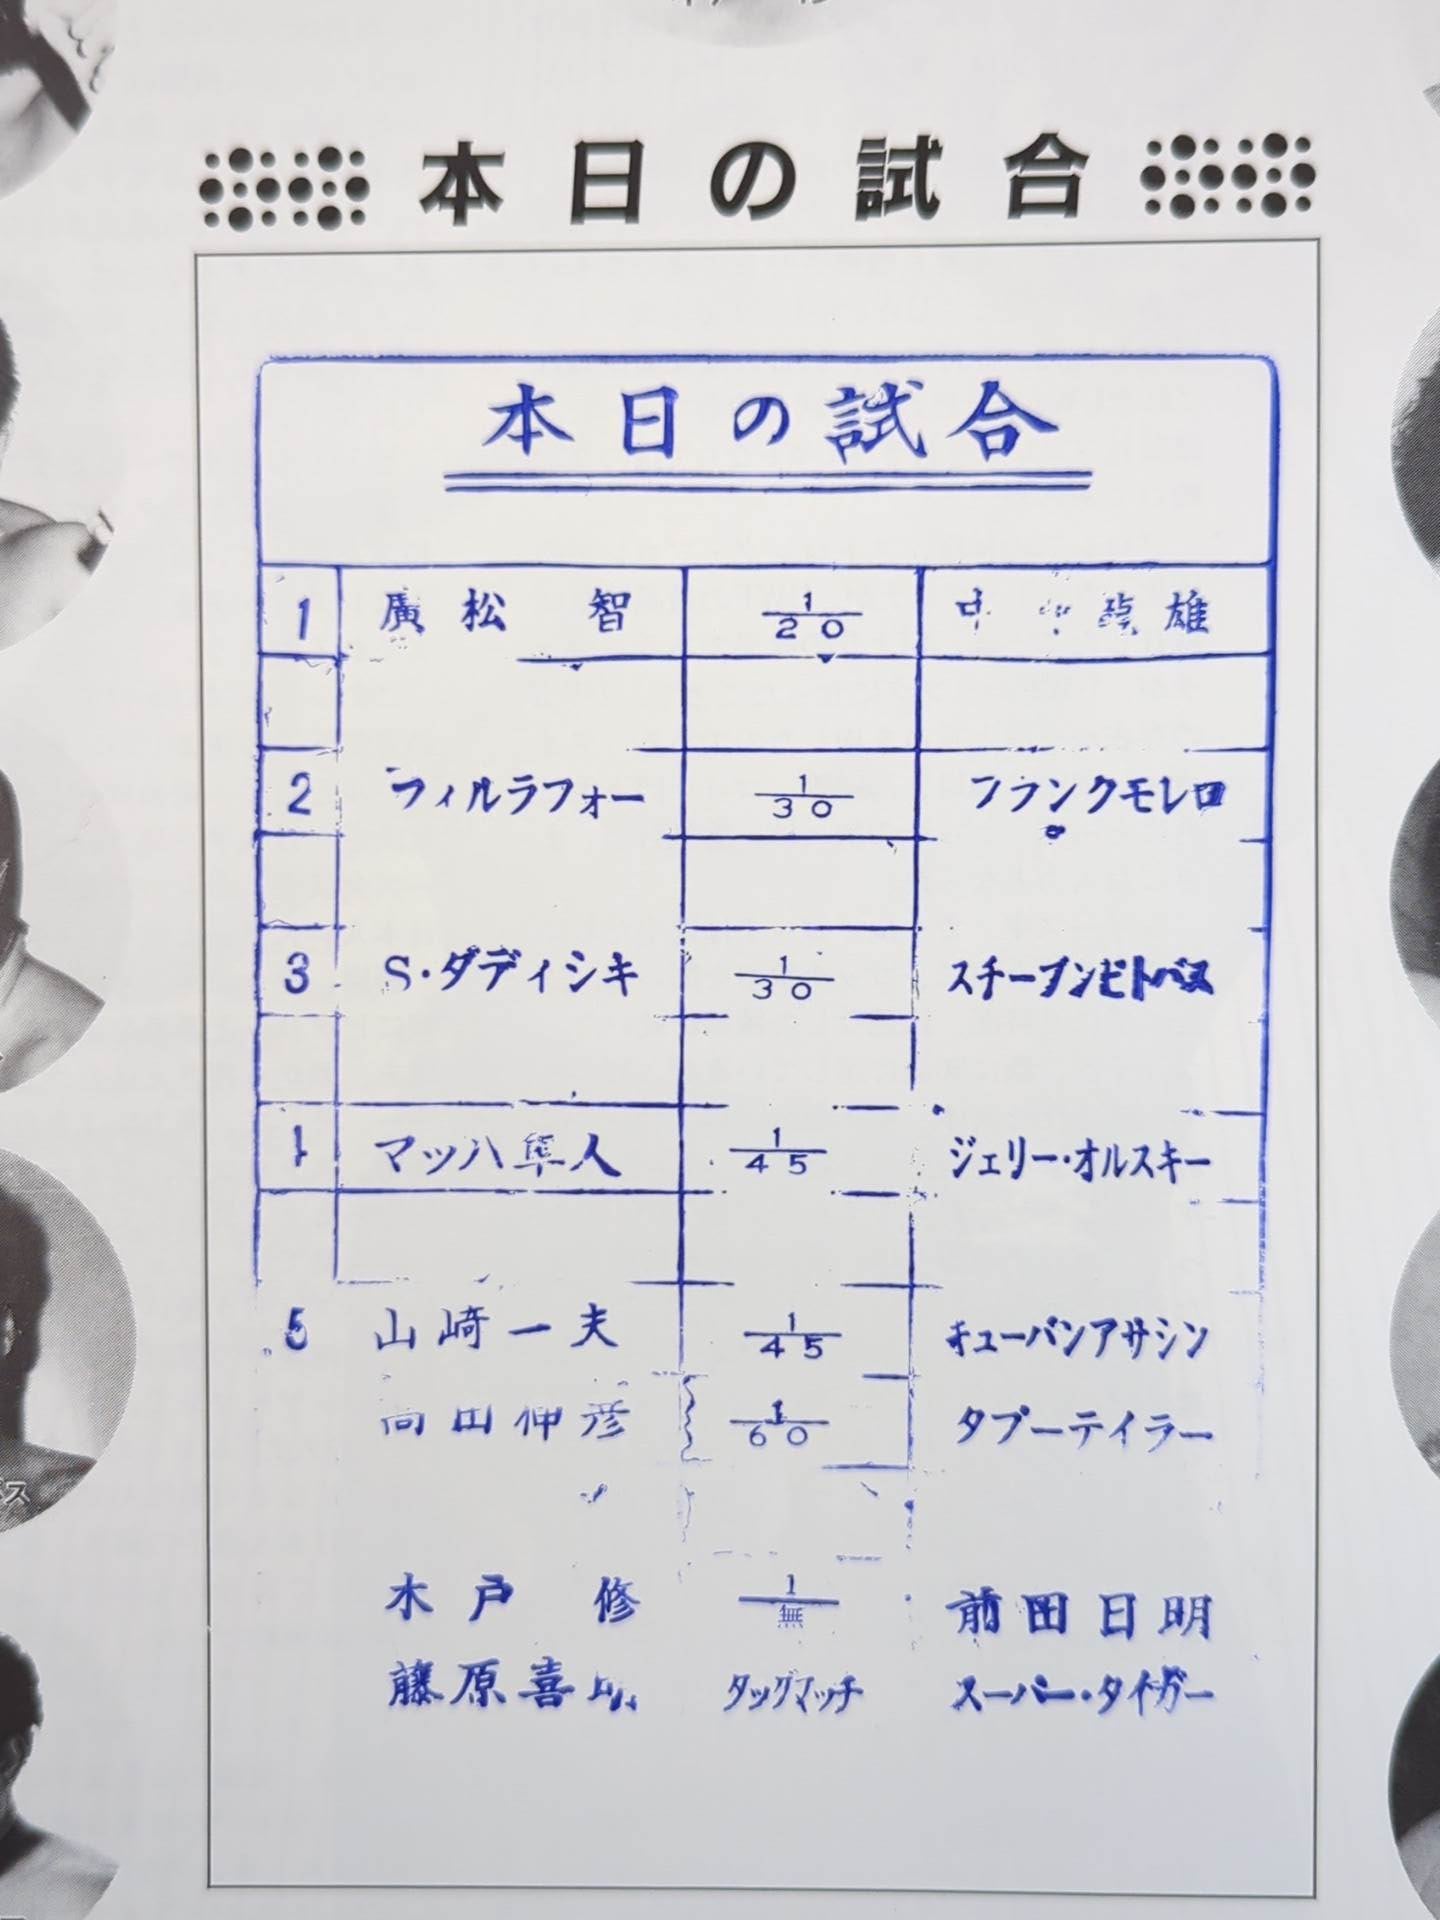 本日の試合
本日の試合
1 廣松 智 1/20 雄
2 フィルラフォー 1/30 フランクモレロ
3 S・ダディシキ 1/30 スチーブンビトバス
マッハ隼人 1/45 ジェリー・オルスキー
5 山崎一夫 1/45 キューバンアサシン
高田伸彦 1/60 タブーテイラー
木戸 修 1/無 前田日明
藤原喜 タッグマッチ スーパー・タイガー